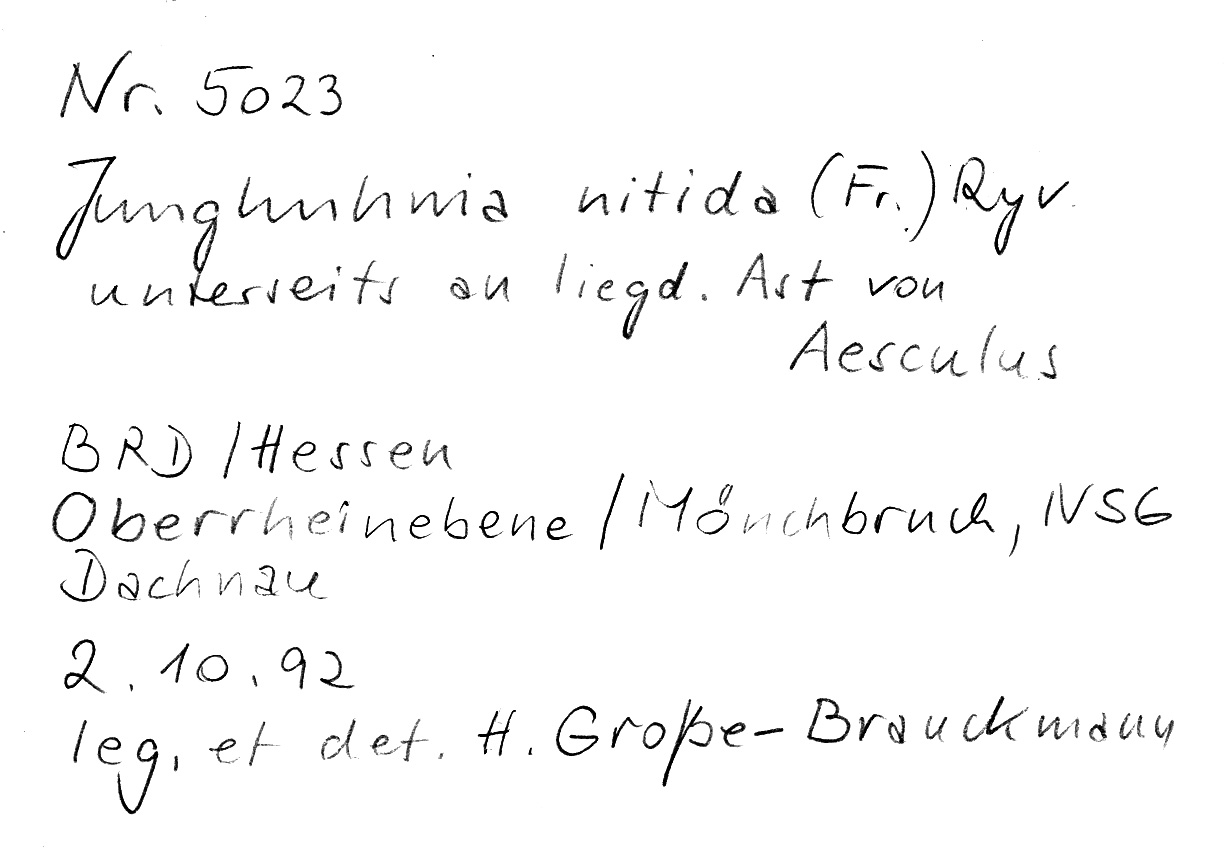 Nr. 5023
Junghuhnia nitida (Fr.) Ryv.
unterseits an liegd. Ast von
Aesculus
BRD / Hessen
Oberrheinebene / Mönchbruch, NSG
Dachnau
2.10.92
leg. et det. H. Große-Brauckmann